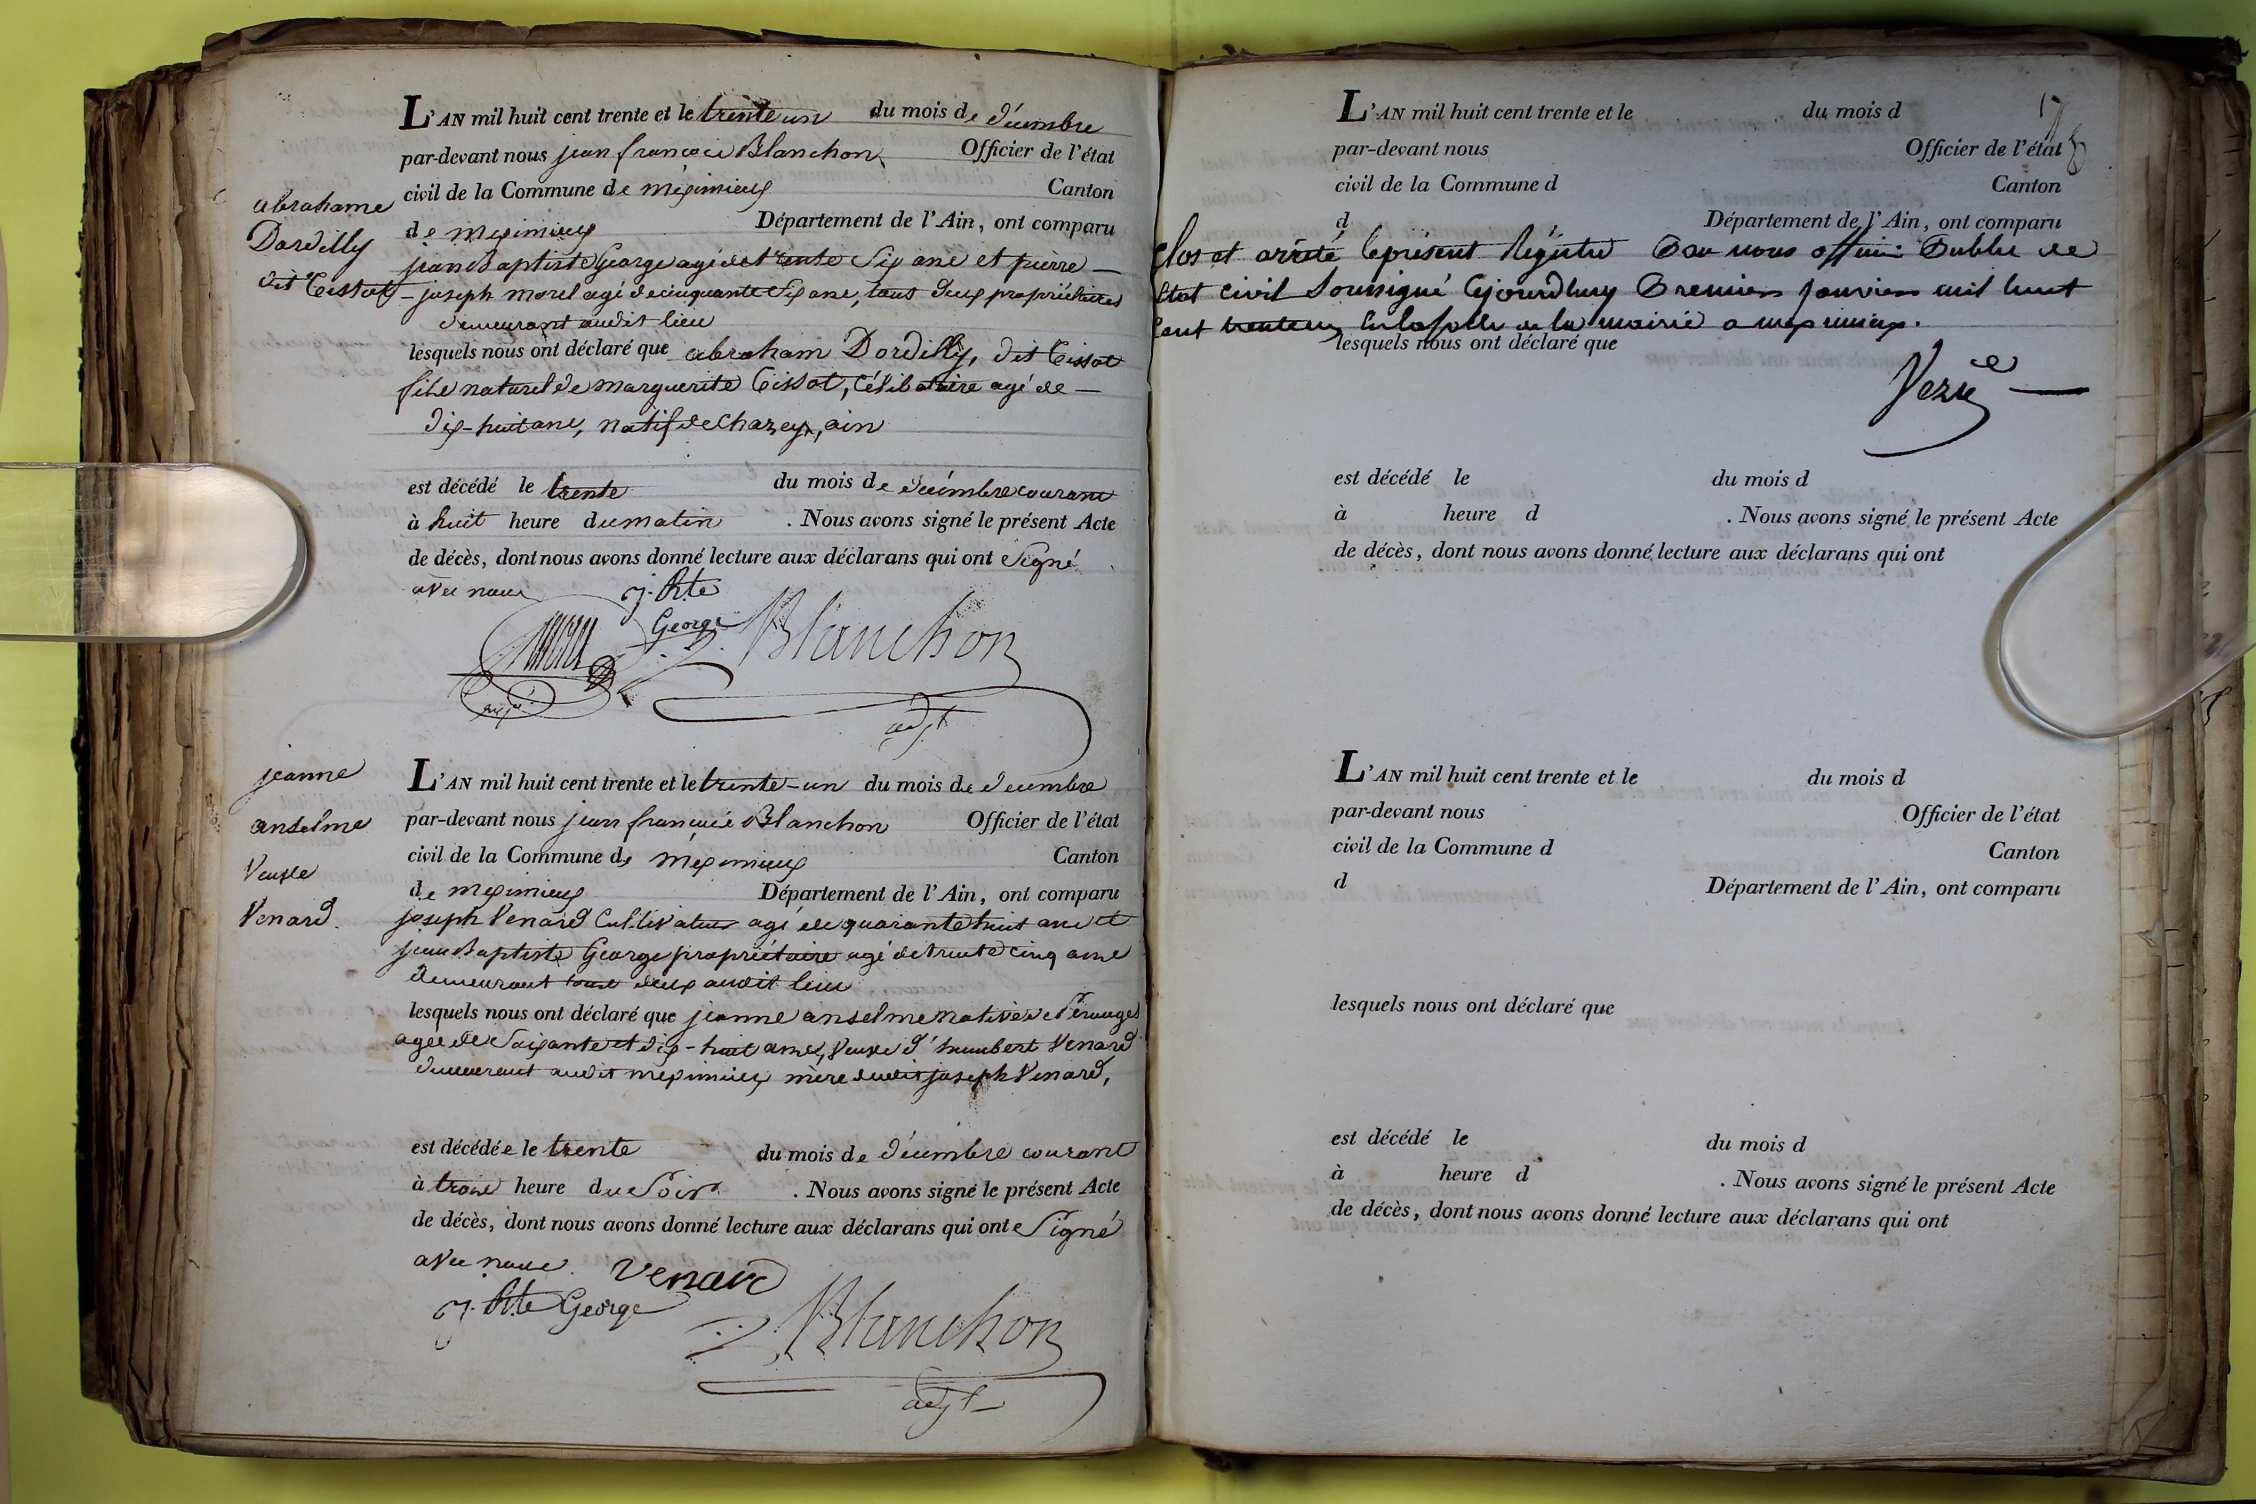 L'AN mil huit cent trente et le trente un du mois de décembre
par-devant nous jean francois Blanchon Officier de l'état
civil de la Commune de méximieux Canton
de meximieux Département de l'Ain, ont comparu
jean Baptiste George agé de trente six ans et pierre
joseph morel agé de cinquante six ans, tous deux propriétaires
demeurant audit lieu
abrahame
Dordilly
dit Tissot
lesquels nous ont déclaré que abraham Dordilly, dit Tissot
fils naturel de marguerite Tissot, célibataire agé de
dix-huit ans, natif de Chazey, ain
est décédé le trente du mois de décembre courant
à huit heure du matin . Nous avons signé le présent Acte
de décès, dont nous avons donné lecture aux déclarans qui ont signé
avec nous
j. Bte
George
Blanchon
adjt
jeanne
anselme
veuve
Venard.
L'AN mil huit cent trente et le trente-un du mois de decembre
par-devant nous jean francois Blanchon Officier de l'état
civil de la Commune de méximieux Canton
de meximieux Département de l'Ain, ont comparu
joseph Venard Cultivateur agé de quarante huit ans et
jean Baptiste George propriétaire agé de trente cinq ans
demeurant tous deux audit lieu
lesquels nous ont déclaré que jeanne anselme native de Pérouges
agée de soixante et dix-huit ans, veuve d'humbert Venard
demeurant audit meximieux mère dudit joseph Venard,
est décédée le trente du mois de décembre courant
à trois heure du soir . Nous avons signé le présent Acte
de décès, dont nous avons donné lecture aux déclarans qui ont signé
avec nous. Venard
j. Bte George
Blanchon
adjt
L'AN mil huit cent trente et le du mois d
par-devant nous Officier de l'état
civil de la Commune d Canton
d Département de l'Ain, ont comparu
Clos et arrêté le présent Régistre par nous officier Public de
Etat civil soussigné cejourdhuy Premier janvier mil huit
cent trente un en la salle de la mairie a meximieux.
lesquels nous ont déclaré que
est décédé le du mois d
à heure d . Nous avons signé le présent Acte
de décès, dont nous avons donné lecture aux déclarans qui ont
L'AN mil huit cent trente et le du mois d
par-devant nous Officier de l'état
civil de la Commune d Canton
d Département de l'Ain, ont comparu
lesquels nous ont déclaré que
est décédé le du mois d
à heure d . Nous avons signé le présent Acte
de décès, dont nous avons donné lecture aux déclarans qui ont